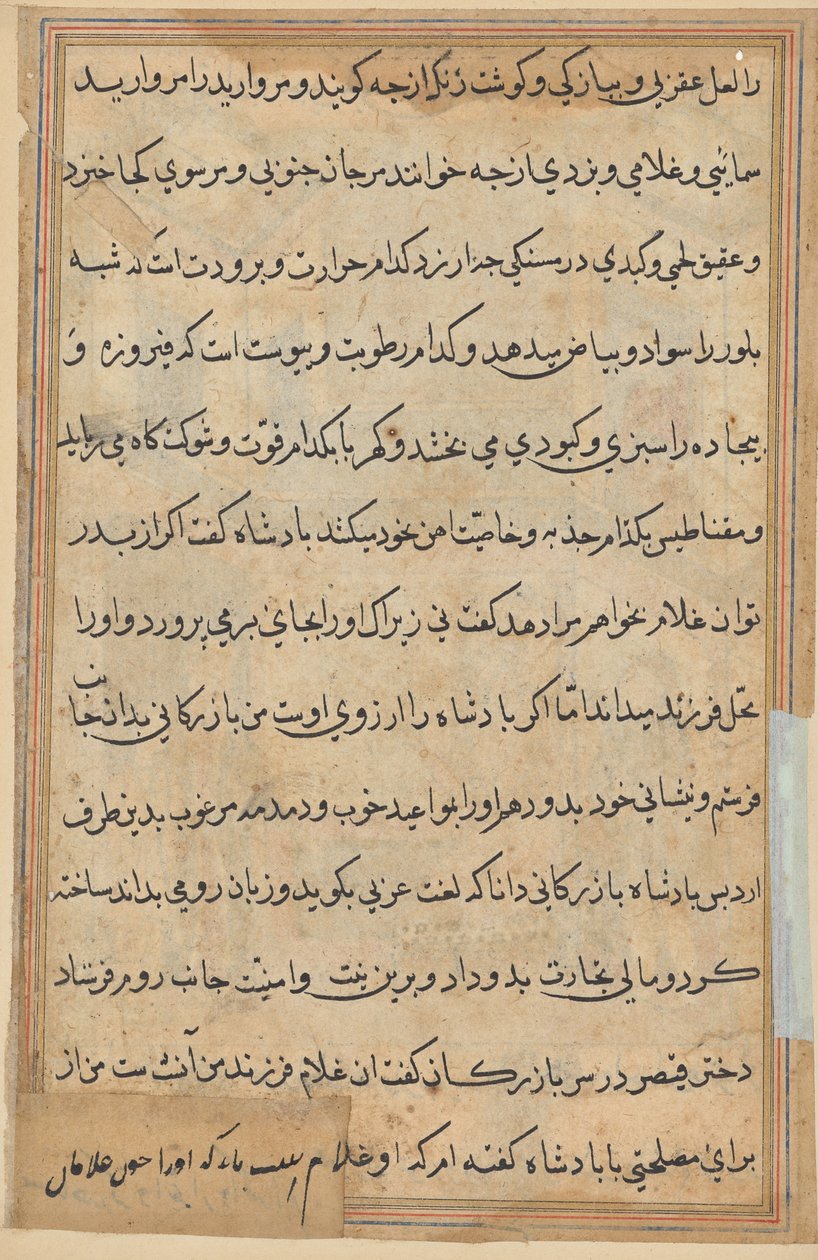 را لعل عقربی و پیازکی و کوشت رنک ازجه کویند و مروارید را مروارید
سمایئی و غلامی و بزدی ازجه خوانند مرجان جنوبی و مرسوی کجا خیزد
و عقیق لحمی و کبدی در مسنکی جه ارزد کدام حرارت و برودت است که شبه
بلور را سواد و بیاض میدهد و کدام رطوبت و یبوست است که فیروزه و
بیجاده را سبزی و کبودی می بخشد و کهربا بکدام قوّت و شوکت کاه می رباید
و مقناطیس بکدام جذبه و خاصیّت اهن بخود میکشد بادشاه کفت اکر از بدر
توان غلام بخواهم مرا دهد کفت نی زیراک اورا بجای بر می پرورد و اورا
بمحّل فرزند میداند امّا اکر بادشاه را ارزوی اوست من بازرکانی بدان جانب
فرستم و نشانی خود بدو دهم اورا بمواعید خوب و دمدمه مرغوب بدین طرف
ارد بس بادشاه بازرکانی دانا که لغت عربی بکوید و زبان رومی بداند ساخته
کرد و مالی بتجارت بدو داد و برین نیت و امنیّت جانب روم فرستاد
دختر قیصر در سر بازرکان کفت ان غلام فرزند من آنست ست من از
برای مصلحتی با بادشاه کفته ام که او غلام باید که اورا جون غلامان